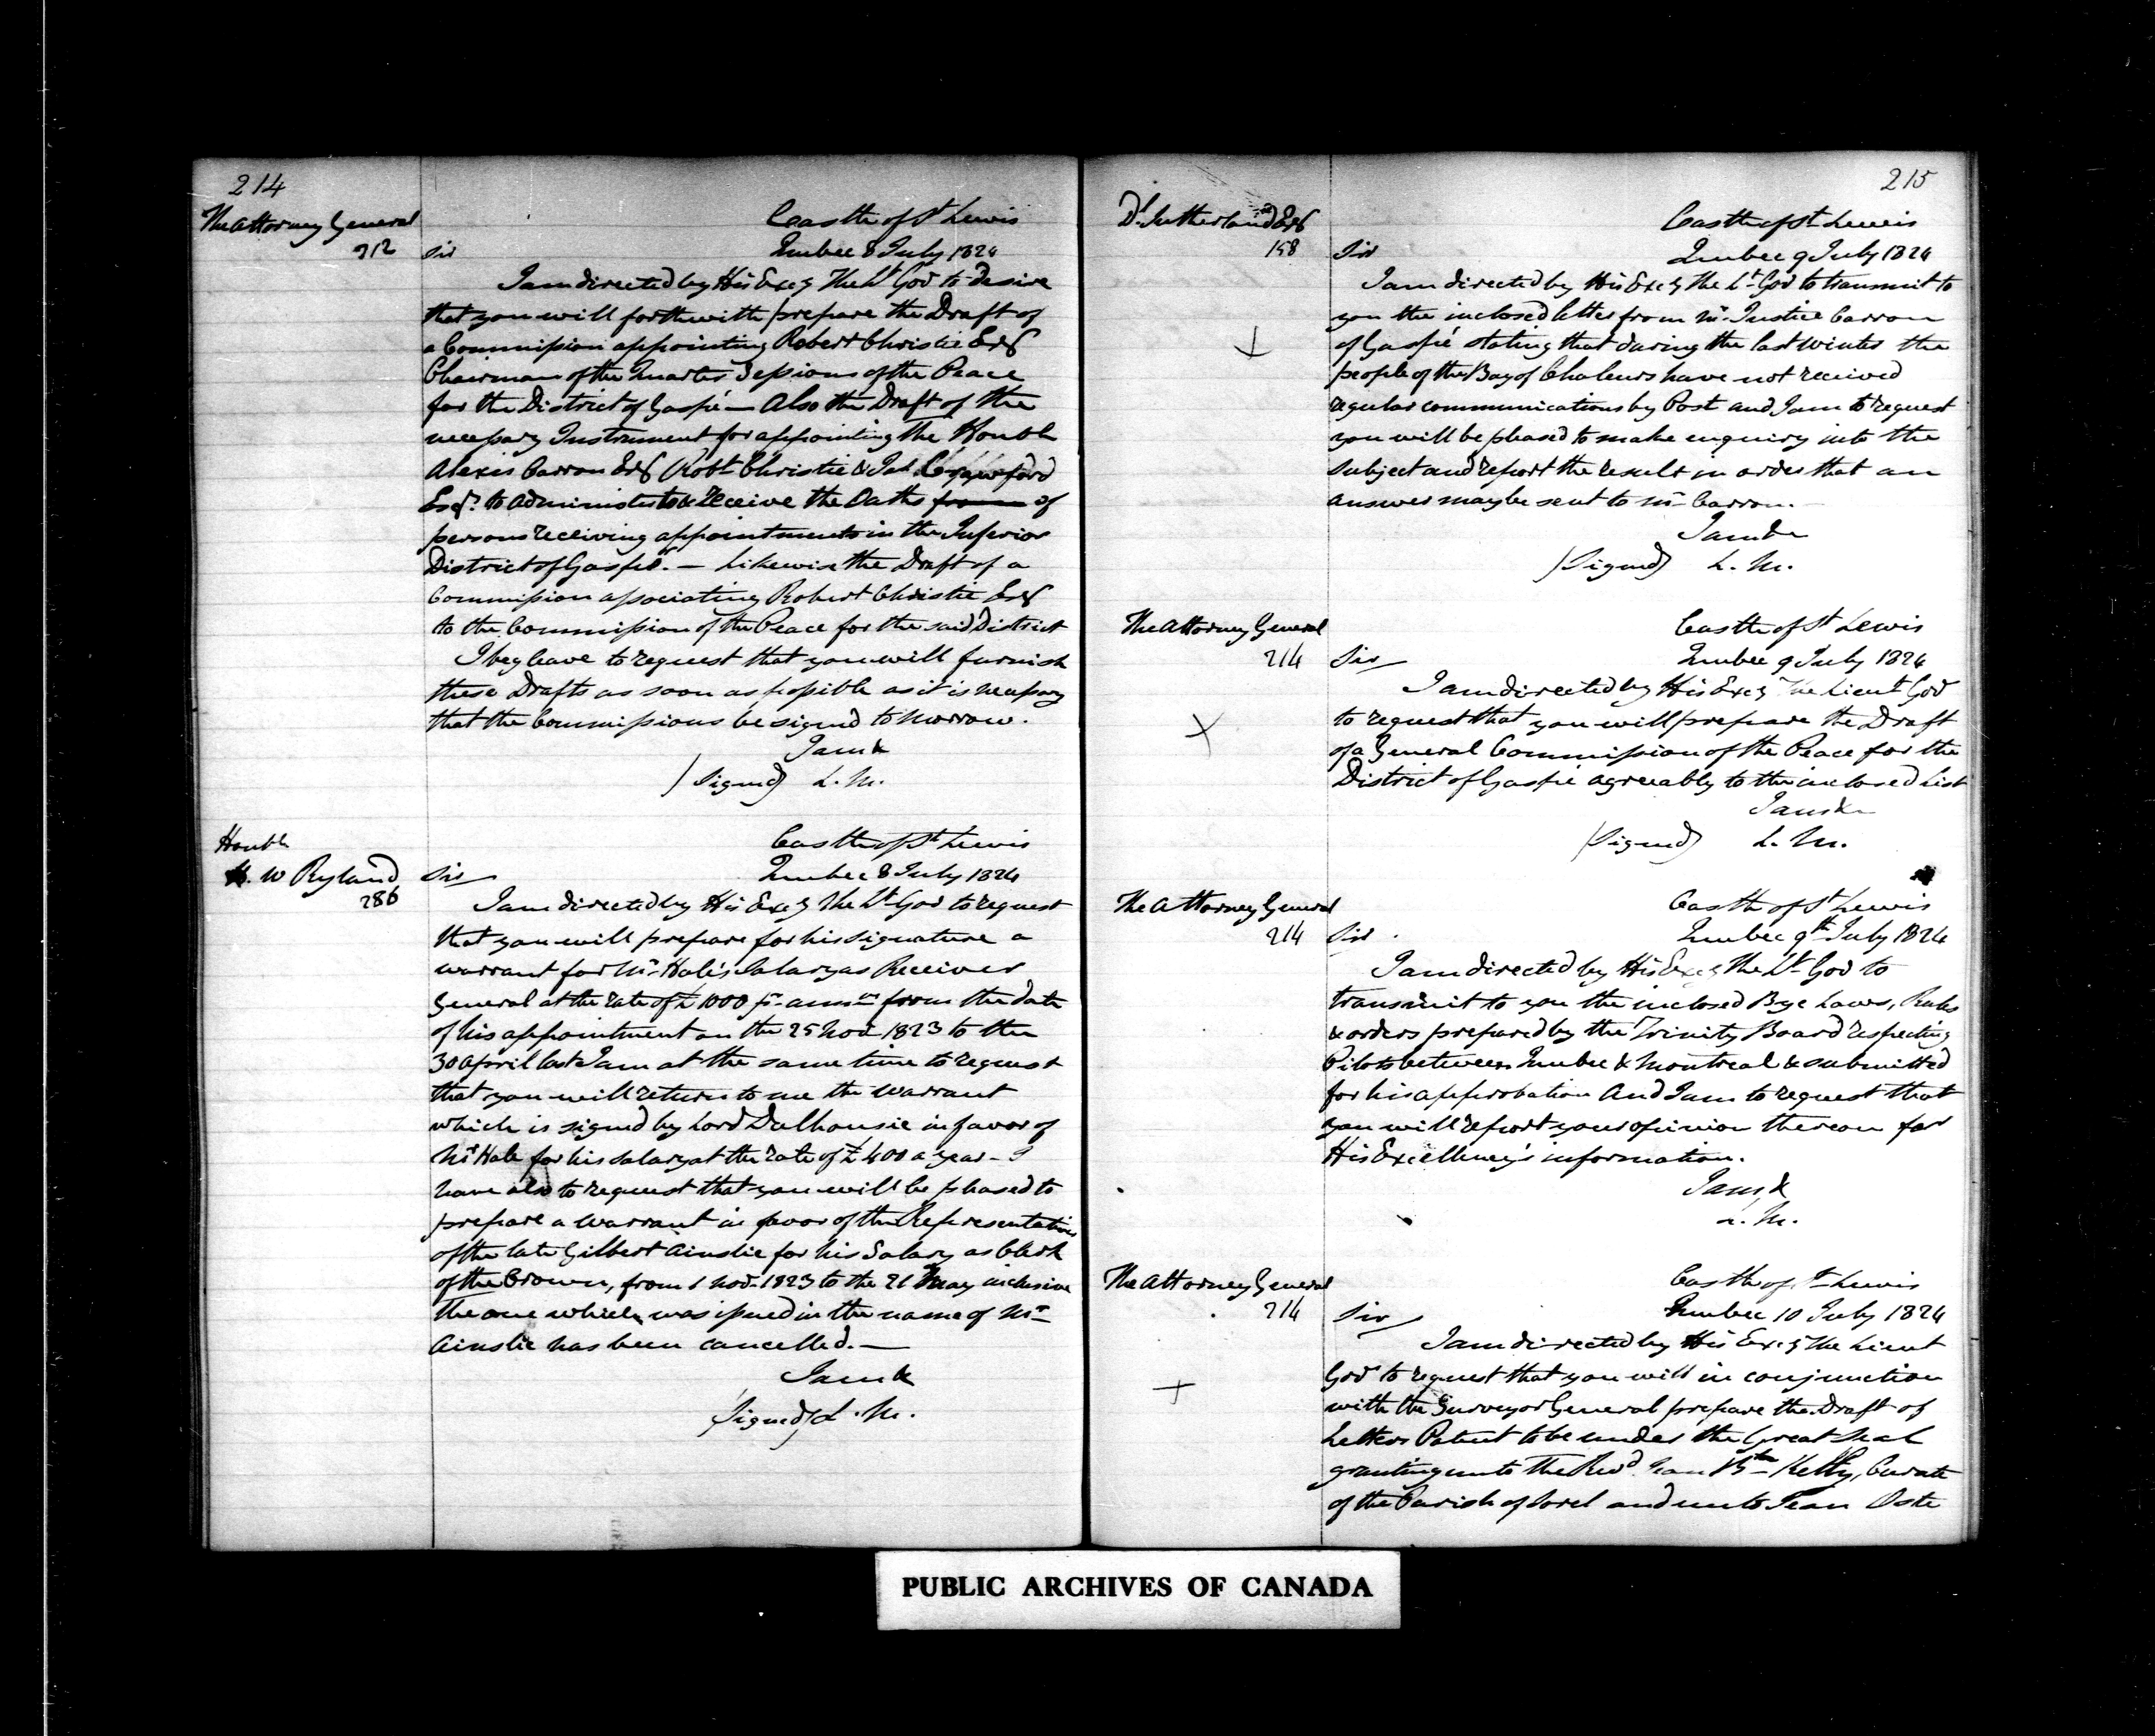 214
The Attorney General
212
Castle of St Lewis
Quebec 8 July 1824
Sir
I am directed by His Excy The Lt Gov to desire
that you will forthwith prepare the Draft of
a Commission appointing Robert Christie Esq
Chairman of the Quarter Sessions of the Peace
for the District of Gaspé — Also the Draft of the
necessary Instrument for appointing the Honble
Alexis Carron Esq Robt Christie & Jas Crawford
Esqr. to administer to & receive the Oaths from of
persons receiving appointments in the Inferior
District of Gaspé. — Likewise the Draft of a
Commission associating Robert Christie Esq
to the Commission of the Peace for the said District
I beg leave to request that you will furnish
these Drafts as soon as possible as it is necessary
that the Commissions be signed to morrow.
I am &
(Signed) L. M.
Honble
H. W Ryland
286
Castle of St Lewis
Quebec 8 July 1824
Sir
I am directed by His Excy The Lt Gov to request
that you will prepare for his signature a
warrant for Mr Hale's Salary as Receiver
General at the rate of £1000 pr annum from the date
of his appointment on the 25 Nov 1823 to the
30 April last I am at the same time to request
that you will return to me the warrant
which is signed by Lord Dalhousie in favor of
Mr Hale for his salary at the rate of £400 a year — I
have also to request that you will be pleased to
prepare a warrant in favor of the Representatives
of the late Gilbert Ainslie for his Salary as Clerk
of the Crown, from 1 Nov. 1823 to the 21 May inclusive
the one which was issued in the name of Mr
Ainslie has been cancelled. —
I am &
(Signed) L. M.
215
Dl Sutherland Esq
158
Castle of St Lewis
Quebec 9 July 1824
Sir
I am directed by His Excy the Lt Gov to transmit to
you the inclosed letter from Mr Justice Carron
of Gaspé stating that during the last winter the
people of the Bay of Chaleurs have not received
regular communications by Post and I am to request
you will be pleased to make enquiry into the
subject and report the result in order that an
answer may be sent to Mr Carron.
I am &
(Signed) L. M.
The Attorney General
214
Castle of St Lewis
Quebec 9 July 1824
Sir
I am directed by His Excy The Lieut Gov
to request that you will prepare the Draft
of a General Commission of the Peace for the
District of Gaspé agreeably to the inclosed List
I am &
(Signed) L. M.
The Attorney General
214
Castle of St Lewis
Quebec 9th July 1824
Sir
I am directed by His Excy The Lt Gov to
transmit to you the inclosed Bye Laws, Rules
& orders prepared by the Trinity Board respecting
Pilots between Quebec & Montreal & submitted
for his approbation And I am to request that
you will report your opinion thereon for
His Excellency's information.
I am &
L. M.
The Attorney General
214
Castle of St Lewis
Quebec 10 July 1824
Sir
I am directed by His Excy The Lieut
Govr to request that you will in conjunction
with the Surveyor General prepare the Draft of
Letters Patent to be under the Great Seal
granting unto The Revd. Jean Bte Kelly, Curate
of the Parish of Sorel and unto Jean Oste
PUBLIC ARCHIVES OF CANADA